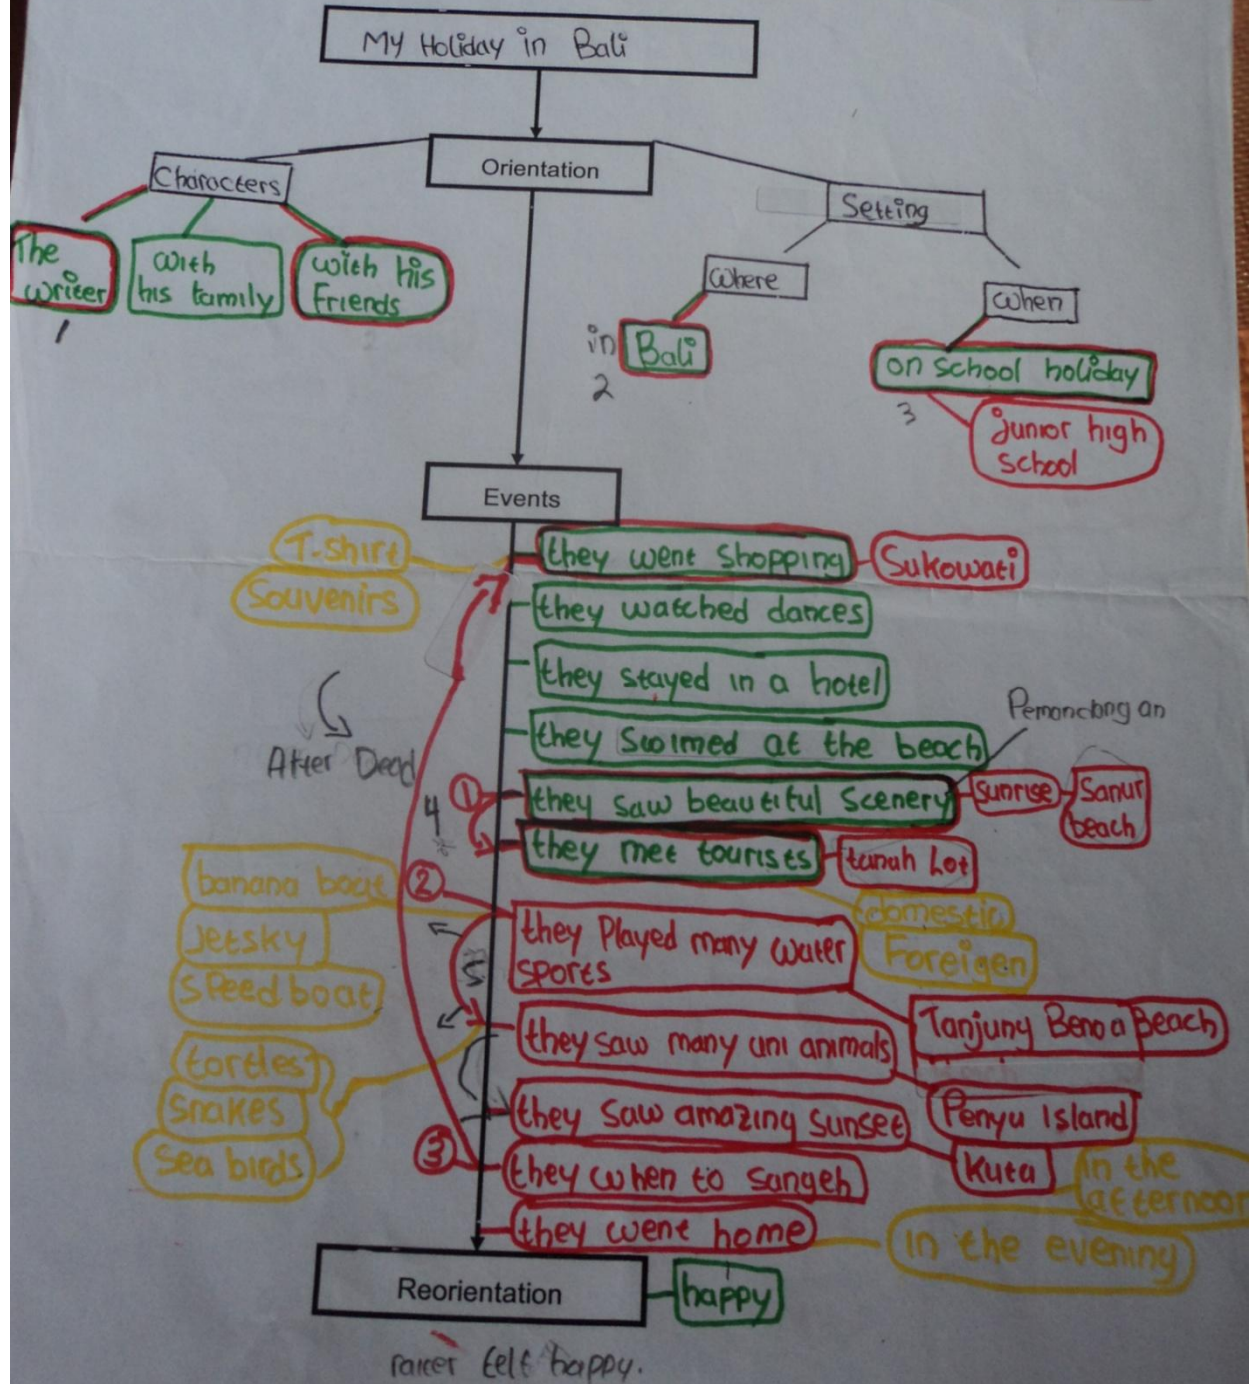 My Holiday in Bali
Orientation
Characters
Setting
The
writer
with
his family
with his
Friends
1
Where
When
in
Bali
2
on school holiday
3
junior high
school
Events
T-shirt
Souvenirs
they went shopping
Sukowati
they watched dances
they stayed in a hotel
they swimed at the beach
After Dead
4
1
they saw beautiful scenery
sunrise
Sanur
beach
they met tourists
tanah Lot
domestic
Foreigen
banana boat
Jetsky
speed boat
2
5
they Played many water
sports
Tanjung Benoa Beach
they saw many uni animals
Penyu Island
tortles
snakes
Sea birds
they saw amazing sunset
Kuta
in the
afternoon
3
they when to sangeh
they went home
in the evening
Reorientation
happy
felt happy.